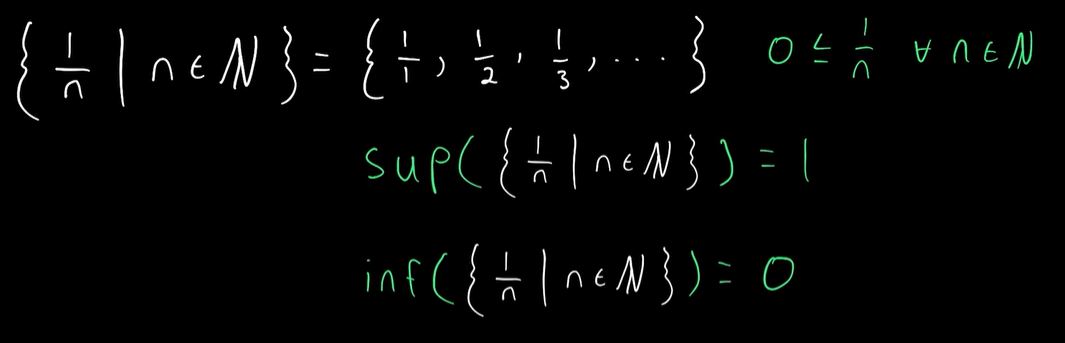 { 1/n | n ∈ ℕ } = { 1/1, 1/2, 1/3, ... } 0 ≤ 1/n ∀ n ∈ ℕ
sup({ 1/n | n ∈ ℕ }) = 1
inf({ 1/n | n ∈ ℕ }) = 0